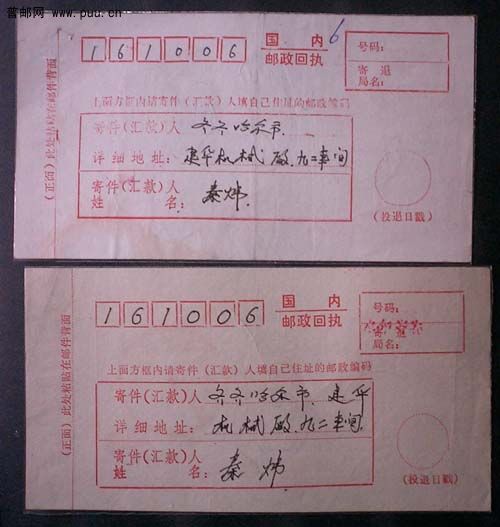 普邮网 www.puu.cn
161006
国内 6
邮政回执
号码：
寄退
局名：
上面方框内请寄件（汇款）人填自己住址的邮政编码
寄件(汇款)人 齐齐哈尔市.
详细地址： 建华机械厂九二车间
寄件(汇款)人
姓名： 秦炜.
(投退日戳)
（正面）此处粘贴在邮件背面
161006
国内
邮政回执
号码：
寄退
局名：
上面方框内请寄件（汇款）人填自己住址的邮政编码
寄件(汇款)人 齐齐哈尔市.建华
详细地址： 机械厂九二车间
寄件(汇款)人
姓名： 秦炜.
(投退日戳)
（正面）此处粘贴在邮件背面